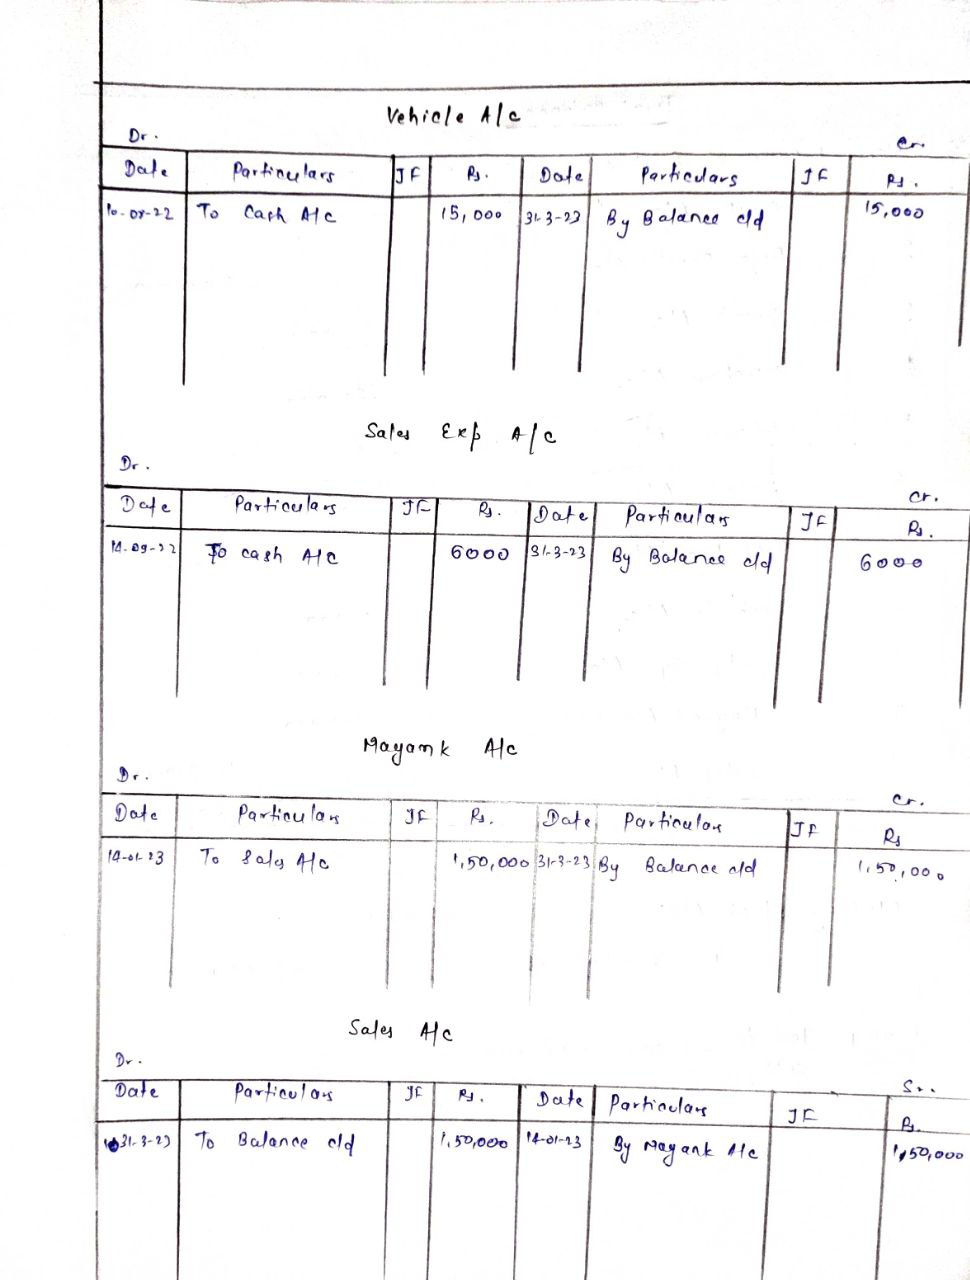 Vehicle A/c
Dr. Cr.
Date Particulars JF Rs. Date Particulars JF Rs.
10-08-22 To Cash A/c 15,000 31-3-23 By Balance c/d 15,000
Sales Exp A/c
Dr. Cr.
Date Particulars JF Rs. Date Particulars JF Rs.
14-09-22 To cash A/c 6000 31-3-23 By Balance c/d 6000
Mayank A/c
Dr. Cr.
Date Particulars JF Rs. Date Particulars JF Rs
14-01-23 To Sales A/c 1,50,000 31-3-23 By Balance c/d 1,50,000
Sales A/c
Dr.
Date Particulars JF Rs. Date Particulars JF Rs.
31-3-23 To Balance c/d 1,50,000 14-01-23 By Mayank A/c 1,50,000